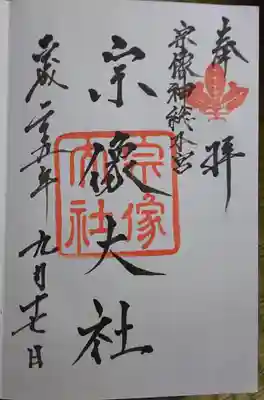 奉拝
宗像神総本宮
宗像大社
宗像大社
平成二十五年九月十七日